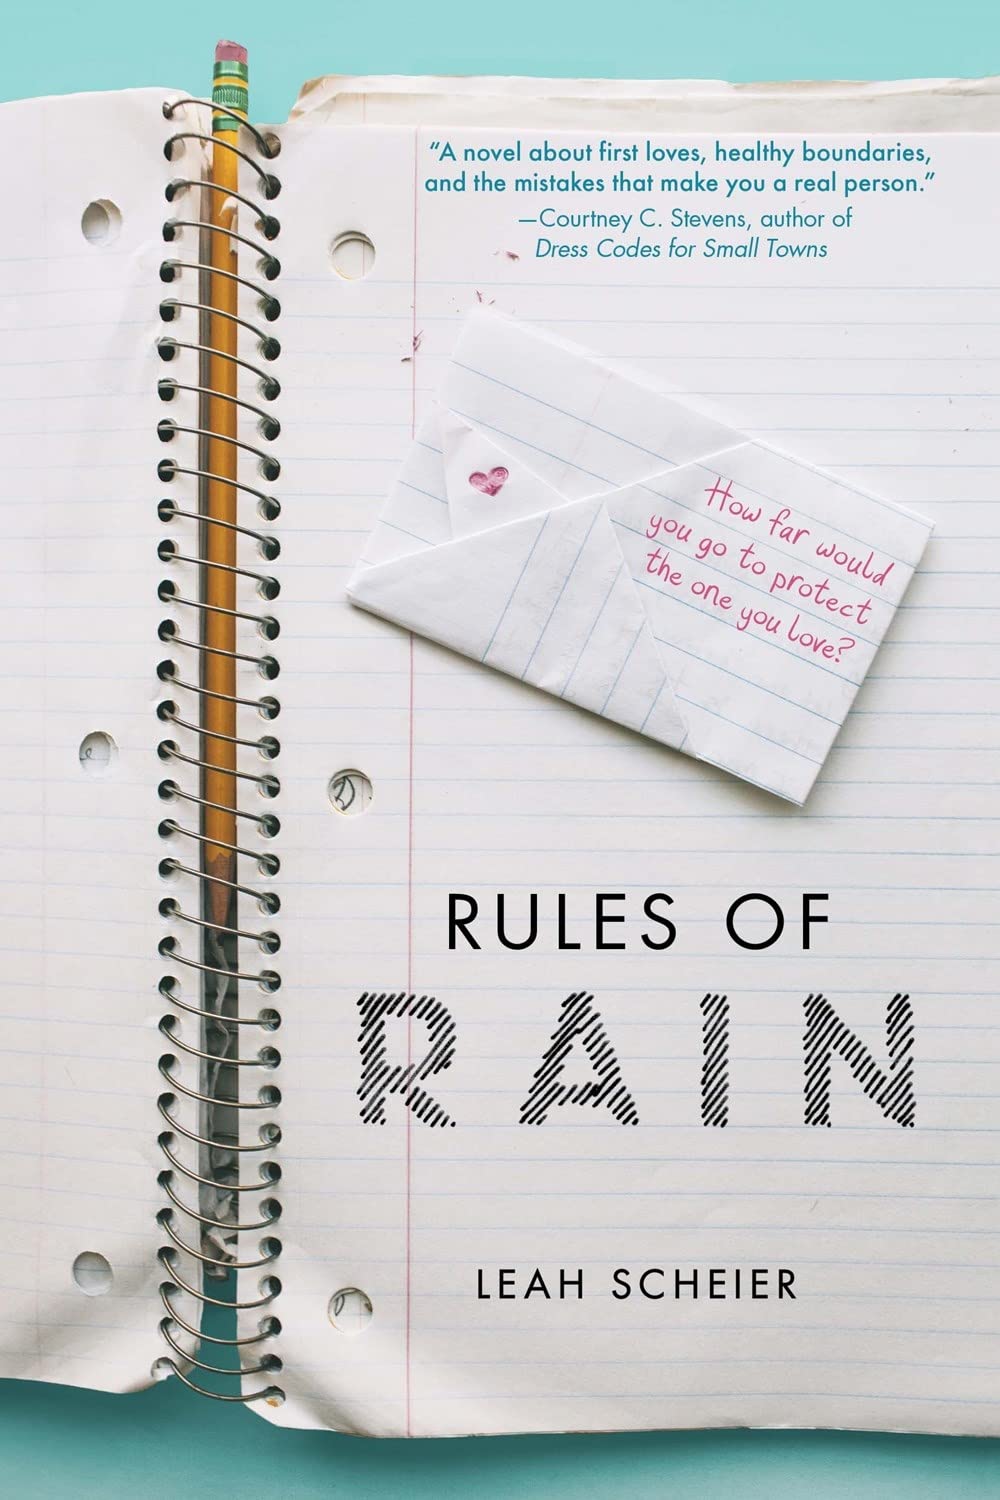 “A novel about first loves, healthy boundaries,
and the mistakes that make you a real person.”
—Courtney C. Stevens, author of
Dress Codes for Small Towns
How far would
you go to protect
the one you love?
RULES OF
RAIN
LEAH SCHEIER